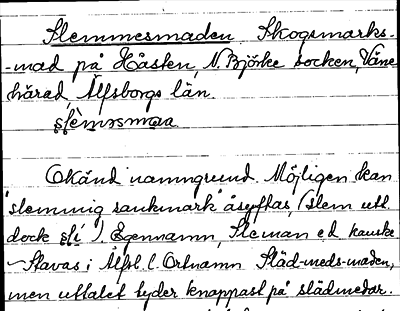 Slemmesmaden Skogsmarks-
-mad på Håsten, N. Björke socken, Väne
härad, Älfsborgs län.
Okänd namngrund. Möjligen kan
"slemmig sankmark" åsyftas, (slem utt.
dock sli'). Egennamn, Sleman el. kanske
Stavas i Älfsb. l. Ortnamn Släd-meds-maden,
men uttalet tyder knappast på slädmedar.